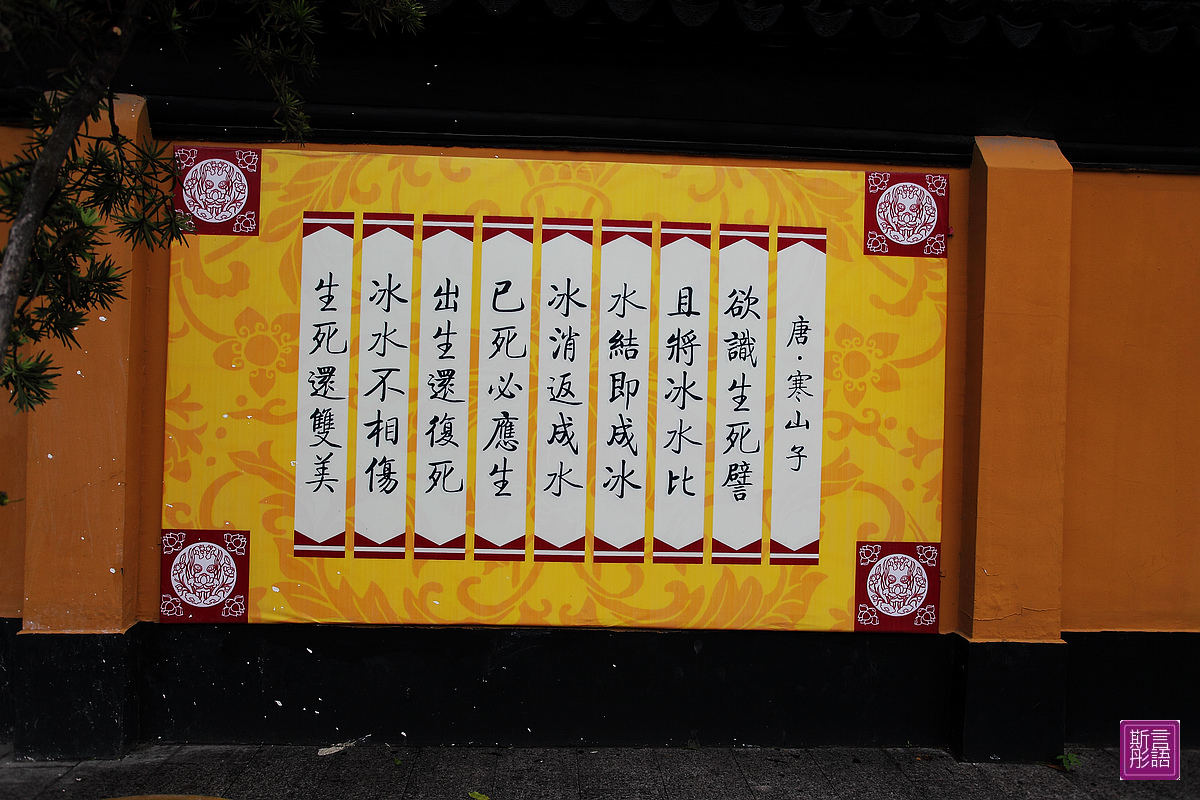 唐·寒山子
欲識生死譬
且將冰水比
水結即成冰
冰消返成水
已死必應生
出生還復死
冰水不相傷
生死還雙美
斯言
彤語